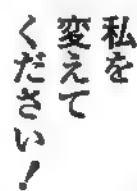 私を
変えて
ください！